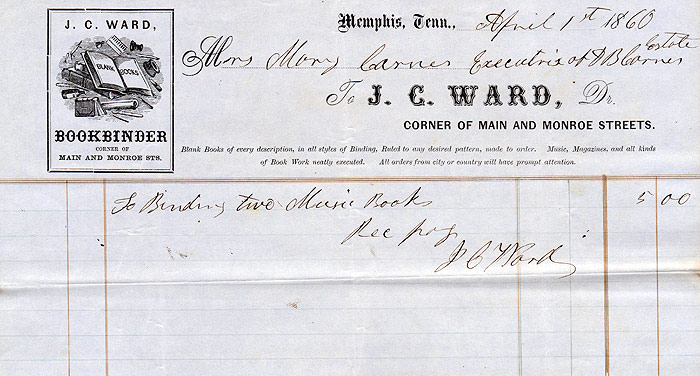 J. C. WARD,
BLANK BOOKS
BOOKBINDER
CORNER OF
MAIN AND MONROE STS.
Memphis, Tenn., April 1st 1860
Mrs Mary Carnes Executrix of Estate
J B Carnes
To J. C. WARD, Dr.
CORNER OF MAIN AND MONROE STREETS.
Blank Books of every description, in all styles of Binding, Ruled to any desired pattern, made to order. Music, Magazines, and all kinds
of Book Work neatly executed. All orders from city or country will have prompt attention.
To Binding two Music Books 5 00
Rec pay
J C Ward